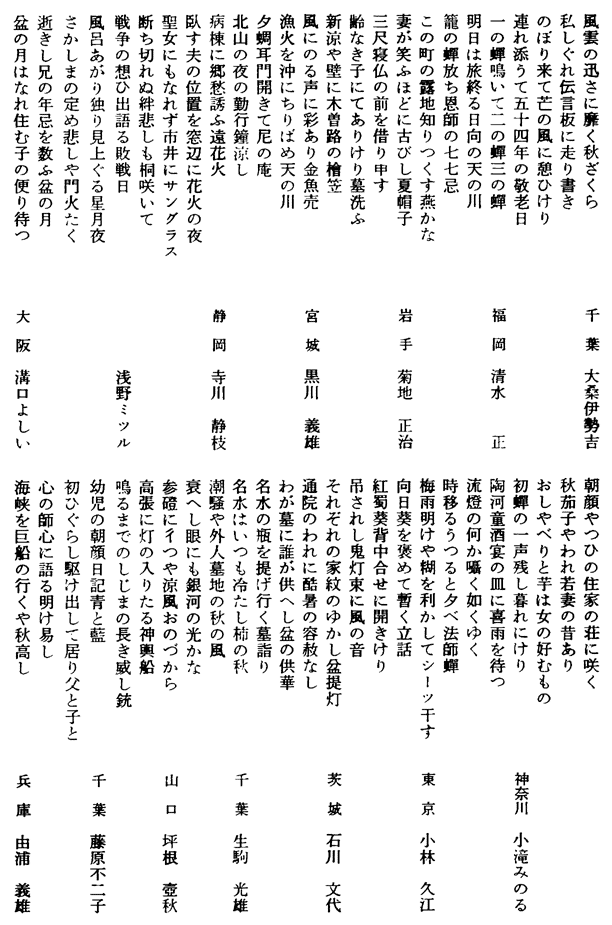 風雲の迅さに靡く秋ざくら　千葉　大桑伊勢吉
私しぐれ伝言板に走り書き
のぼり来て芒の風に憩ひけり
連れ添うて五十四年の敬老日
一の蟬鳴いて二の蟬三の蟬　福岡　清水　正
明日は旅終る日向の天の川
籠の蟬放ち恩師の七七忌
この町の露地知りつくす燕かな
妻が笑ふほどに古びし夏帽子　岩手　菊地　正治
三尺寝仏の前を借り申す
齢なき子にてありけり墓洗ふ
新涼や壁に木曽路の檜笠
風にのる声に彩あり金魚売　宮城　黒川　義雄
漁火を沖にちりばめ天の川
夕蜩耳門開きて尼の庵
北山の夜の勤行鐘涼し
病棟に郷愁誘ふ遠花火　静岡　寺川　静枝
臥す夫の位置を窓辺に花火の夜
聖女にもなれず市井にサングラス
断ち切れぬ絆悲しも桐咲いて
戦争の想ひ出語る敗戦日　浅野ミツル
風呂あがり独り見上ぐる星月夜
さかしまの定め悲しや門火たく
逝きし兄の年忌を数ふ盆の月
盆の月はなれ住む子の便り待つ　大阪　溝口よしい
朝顔やつひの住家の荘に咲く
秋茄子やわれ若妻の昔あり
おしやべりと芋は女の好むもの
初蟬の一声残し暮れにけり　神奈川　小滝みのる
陶河童酒宴の皿に喜雨を待つ
流燈の何か囁く如くゆく
時移るうつると夕べ法師蟬
梅雨明けや糊を利かしてシーツ干す　東京　小林　久江
向日葵を褒めて暫く立話
紅蜀葵背中合せに開きけり
吊されし鬼灯束に風の音
それぞれの家紋のゆかし盆提灯　茨城　石川　文代
通院のわれに酷暑の容赦なし
わが墓に誰が供へし盆の供華
名水の瓶を提げ行く墓詣り
名水はいつも冷たし柿の秋　千葉　生駒　光雄
潮騒や外人墓地の秋の風
衰へし眼にも銀河の光かな
参磴にイつや涼風おのづから　山口　坪根　壺秋
高張に灯の入りたる神輿船
鳴るまでのしじまの長き威し銃
幼児の朝顔日記青と藍　千葉　藤原不二子
初ひぐらし駆け出して居り父と子と
心の師心に語る明け易し
海峡を巨船の行くや秋高し　兵庫　由浦　義雄